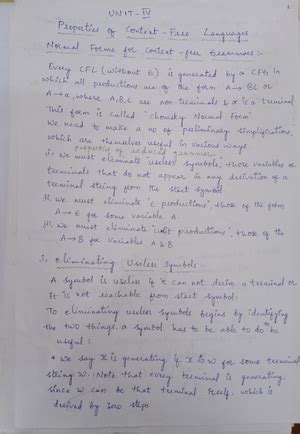 UNIT-IV
Properties of Context-Free Languages
Normal Forms for Context-free Grammars:-
Every CFL (without ε) is generated by a CFG in
which all productions are of the form A→BC or
A→α, where A,B,C are non-terminals & α is a terminal
This form is called 'Chomsky Normal Form'
We need to make a no of preliminary simplifications,
which are themselves useful in various ways
properties of reduced grammar
i. We must eliminate 'useless symbols', those variables or
terminals that do not appear in any derivation of a
terminal string from the start symbol
ii. We must eliminate 'ε-productions', those of the form
A→ε for some variable A
iii. We must eliminate 'unit productions', those of the
A→B for variables A & B
i. Eliminating Useless Symbols
A symbol is useless if it can not derive a terminal or
It is not reachable from start symbol.
To eliminating useless symbols begins by identifying
the two things, a symbol has to be able to do to be
useful:
* We say X is generating if X ⇒ w for some terminal
string w. Note that every terminal is generating,
since w can be that terminal itself, which is
derived by zero steps